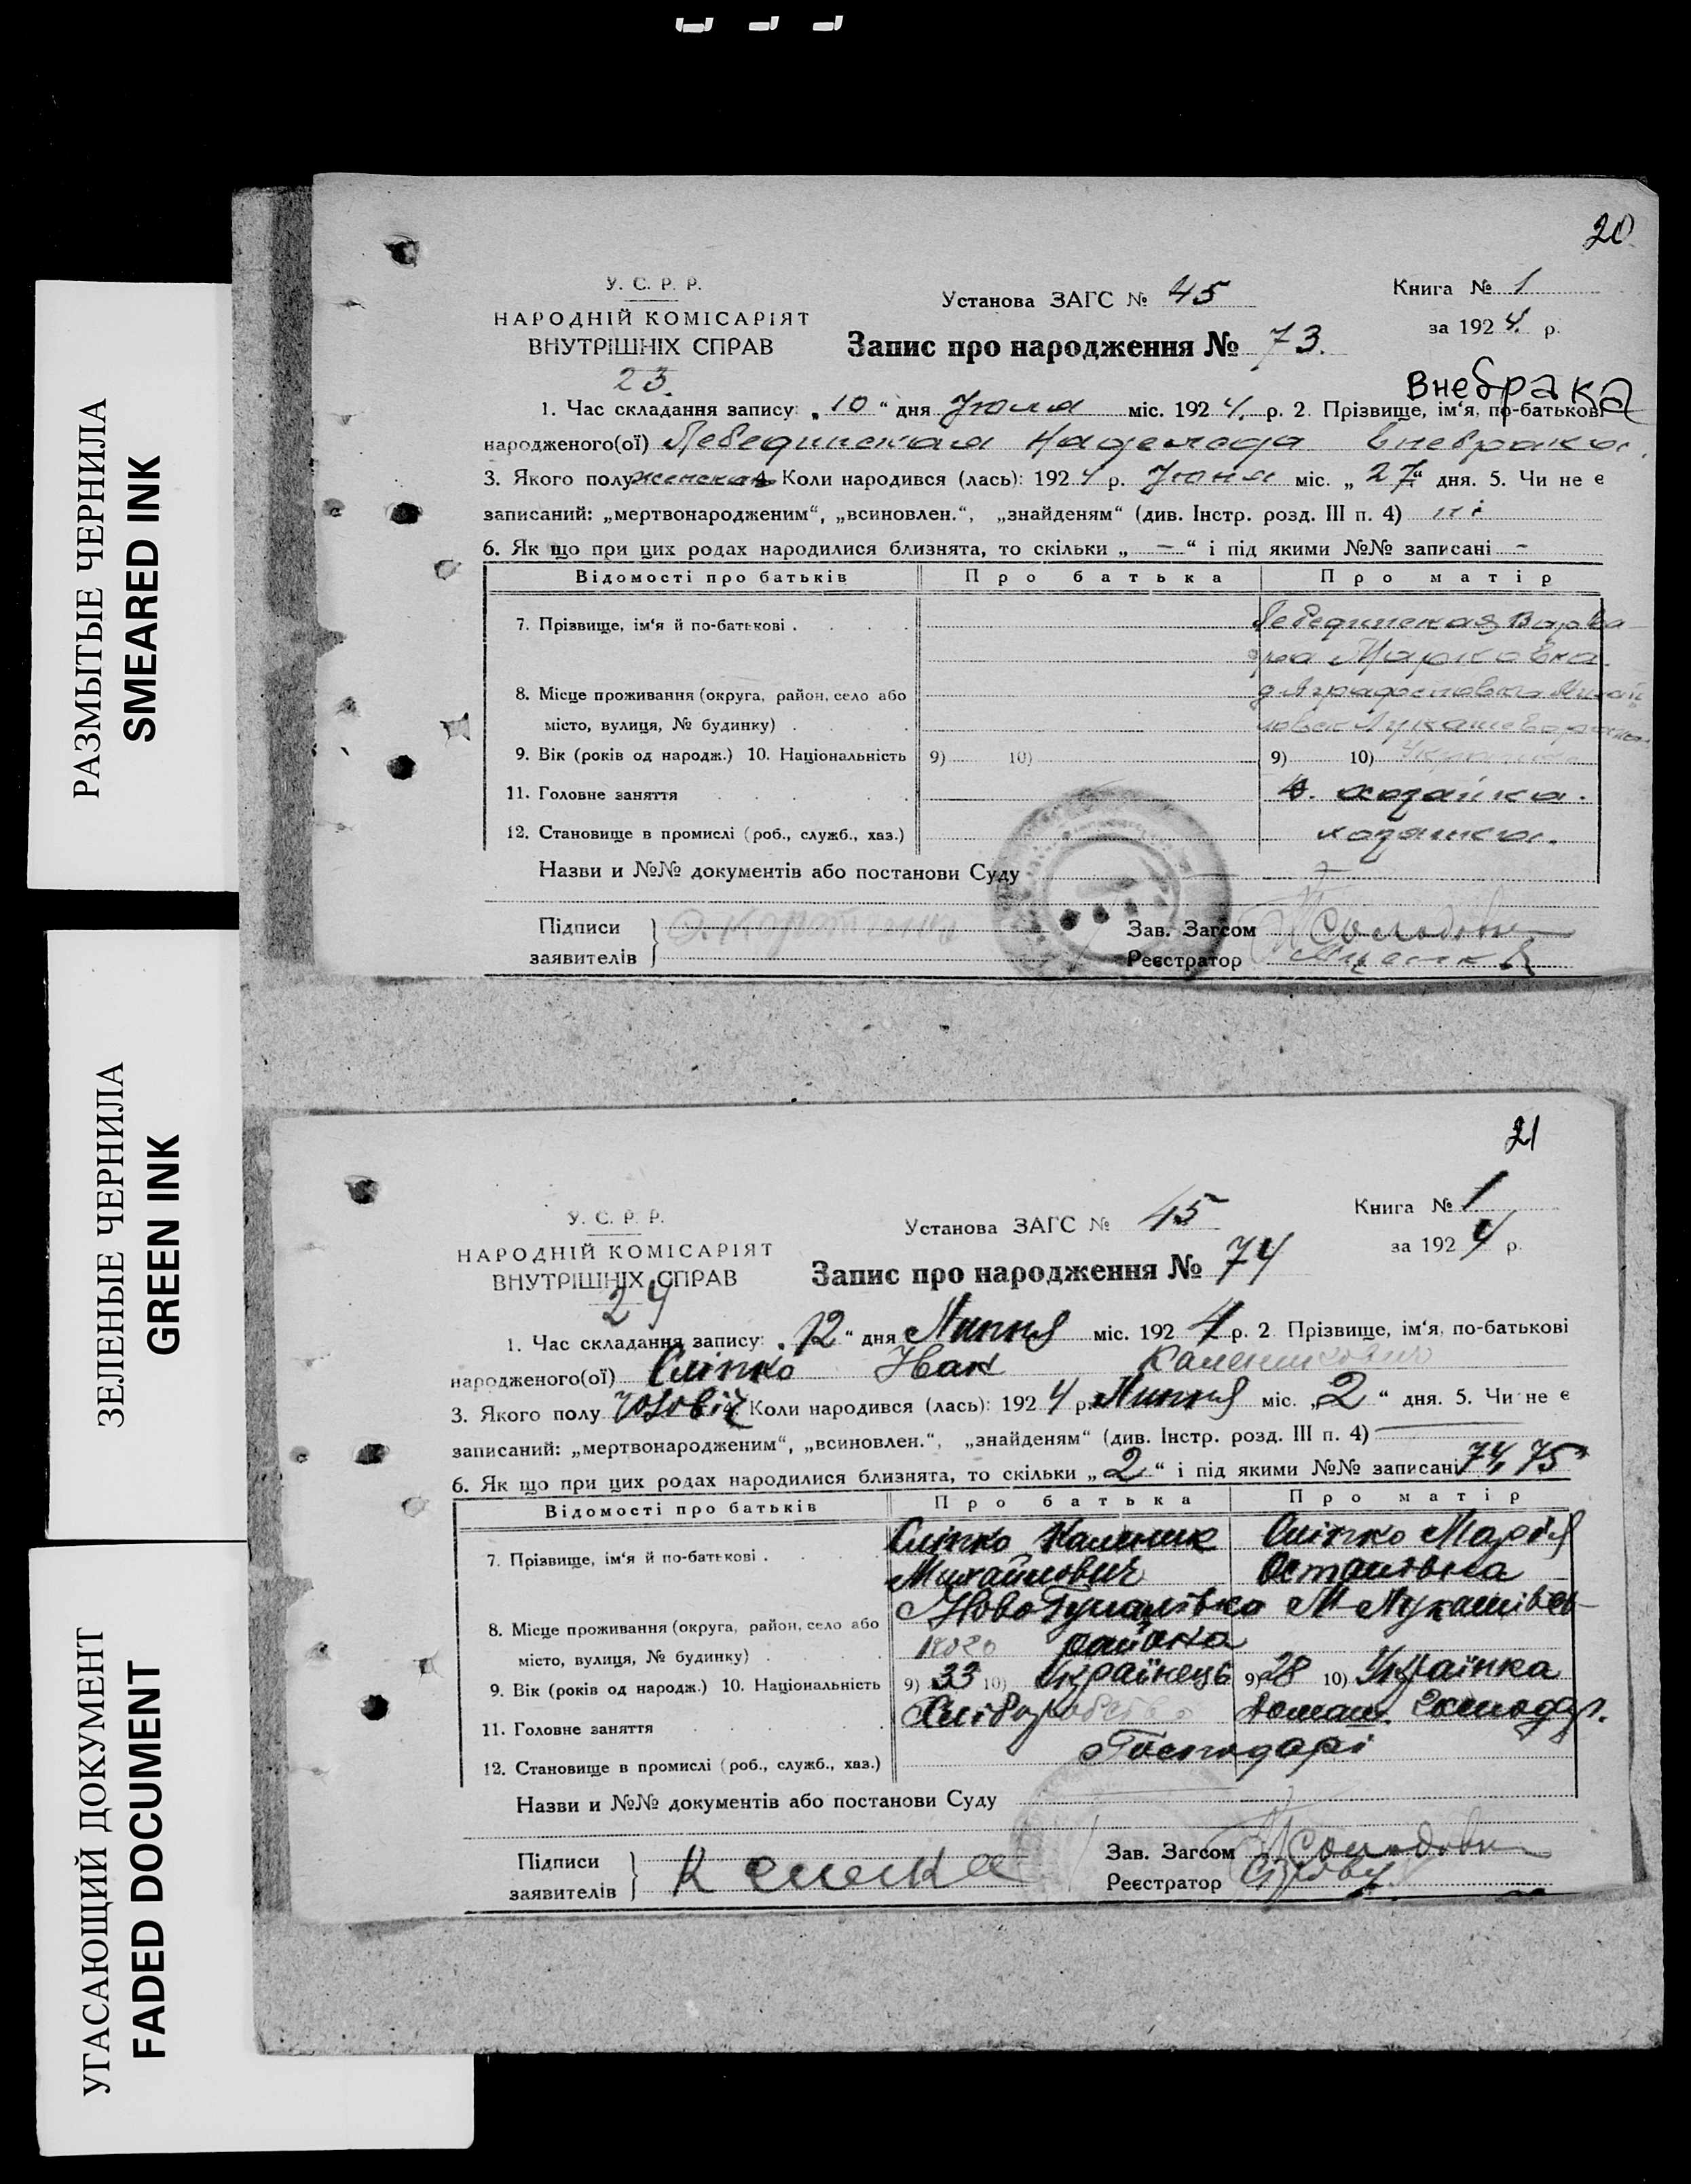 РАЗМЫТЫЕ ЧЕРНИЛА
SMEARED INK
ЗЕЛЕНЫЕ ЧЕРНИЛА
GREEN INK
УГАСАЮЩИЙ ДОКУМЕНТ
FADED DOCUMENT
20
У. С. Р. Р.
НАРОДНІЙ КОМІСАРІЯТ
ВНУТРІШНІХ СПРАВ
23.
Установа ЗАГС № 45
Запис про народження № 73.
Книга № 1
за 1924. р.
Внебрака
1. Час складання запису: „10“ дня Июля міс. 1924. р. 2. Прізвище, ім‘я, по-батькові
народженого(ої) Лебединская Надежда внебрака.
3. Якого полу женская 4. Коли народився (лась): 1924 р. Июня міс. „27“ дня. 5. Чи не є
записаний: „мертвонародженим“, „всиновлен.“, „знайденям“ (див. Інстр. розд. III п. 4) ні
6. Як що при цих родах народилися близнята, то скільки „ — “ і під якими №№ записані -
Відомості про батьків Про батька Про матір
7. Прізвище, ім‘я й по-батькові . Лебединская Варва
ра Марковна
8. Місце проживання (округа, район, село або
місто, вулиця, № будинку) .
9. Вік (років од народж.) 10. Національність 9) 10) 9) 10)
11. Головне заняття хозайка.
12. Становище в промислі (роб., служб., хаз.) хозяйка.
Назви и №№ документів або постанови Суду
Підписи
заявителів
Зав. Загсом
Реєстратор
21
У. С. Р. Р.
НАРОДНІЙ КОМІСАРІЯТ
ВНУТРІШНІХ СПРАВ
24
Установа ЗАГС № 45
Запис про народження № 74
Книга № 1
за 1924 р.
1. Час складання запису: „12“ дня Липня міс. 1924 р. 2. Прізвище, ім‘я, по-батькові
народженого(ої) Сліпко Іван Каленикович
3. Якого полу Чоловіч 4. Коли народився (лась): 1924 р. Липня міс. „2“ дня. 5. Чи не є
записаний: „мертвонародженим“, „всиновлен.“, „знайденям“ (див. Інстр. розд. III п. 4)
6. Як що при цих родах народилися близнята, то скільки „2“ і під якими №№ записані 74, 75
Відомості про батьків Про батька Про матір
7. Прізвище, ім‘я й по-батькові . Сліпко Каленик Сліпко Марія
Михайлович Остапівна
8. Місце проживання (округа, район, село або М Лукашівсь-
місто, вулиця, № будинку) . района
9. Вік (років од народж.) 10. Національність 9) 33 10) Українець 9) 28 10) Українка
11. Головне заняття Хліборобство Домаш. господар.
12. Становище в промислі (роб., служб., хаз.) Господарі
Назви и №№ документів або постанови Суду
Підписи
заявителів
Зав. Загсом
Реєстратор